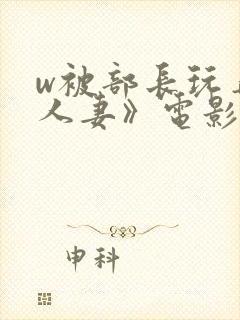 w被部長玩
人妻》電影
申科